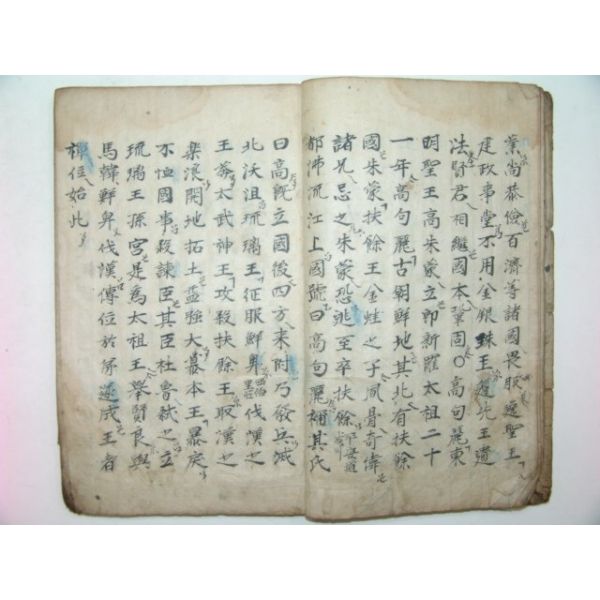 業尚恭儉百濟等諸國畏服逸聖王
建政事堂不用金銀珠玉遵先王遺
法賢君相繼國本鞏固○高句麗東
明聖王高朱蒙立即新羅太祖二十
一年高句麗古朝鮮地其北有扶餘
國朱蒙扶餘王金蛙之子夙骨奇偉
諸兄忌之朱蒙恐逃至卒扶餘
都沸流江上國號曰高句麗稱其氏
曰高旣立國後四方來附乃發兵滅
北沃沮琉璃王征服鮮卑伐漢之
王莽太武神王攻殺扶餘王取漢之
樂浪開地拓土益强大慕本王暴戾
不恤國事殺諫臣其臣杜魯弑之立
琉璃王孫宮是爲太祖王擧賢良與
馬韓鮮卑伐漢傳位於弟遂成王者
禪位始此